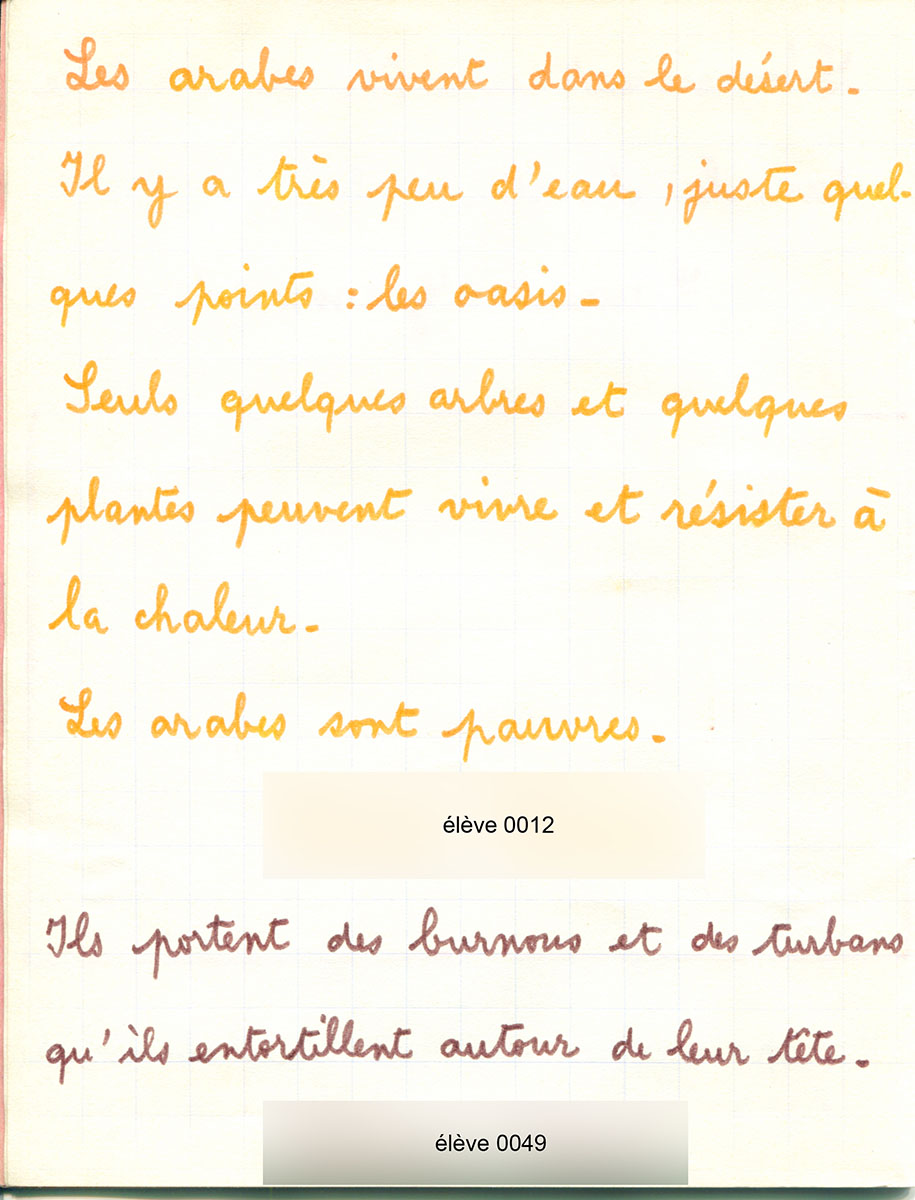 Les arabes vivent dans le désert.
Il y a très peu d'eau, juste quel-
ques points : les oasis.
Seuls quelques arbres et quelques
plantes peuvent vivre et résister à
la chaleur.
Les arabes sont pauvres.
élève 0012
Ils portent des burnous et des turbans
qu'ils entortillent autour de leur tête.
élève 0049